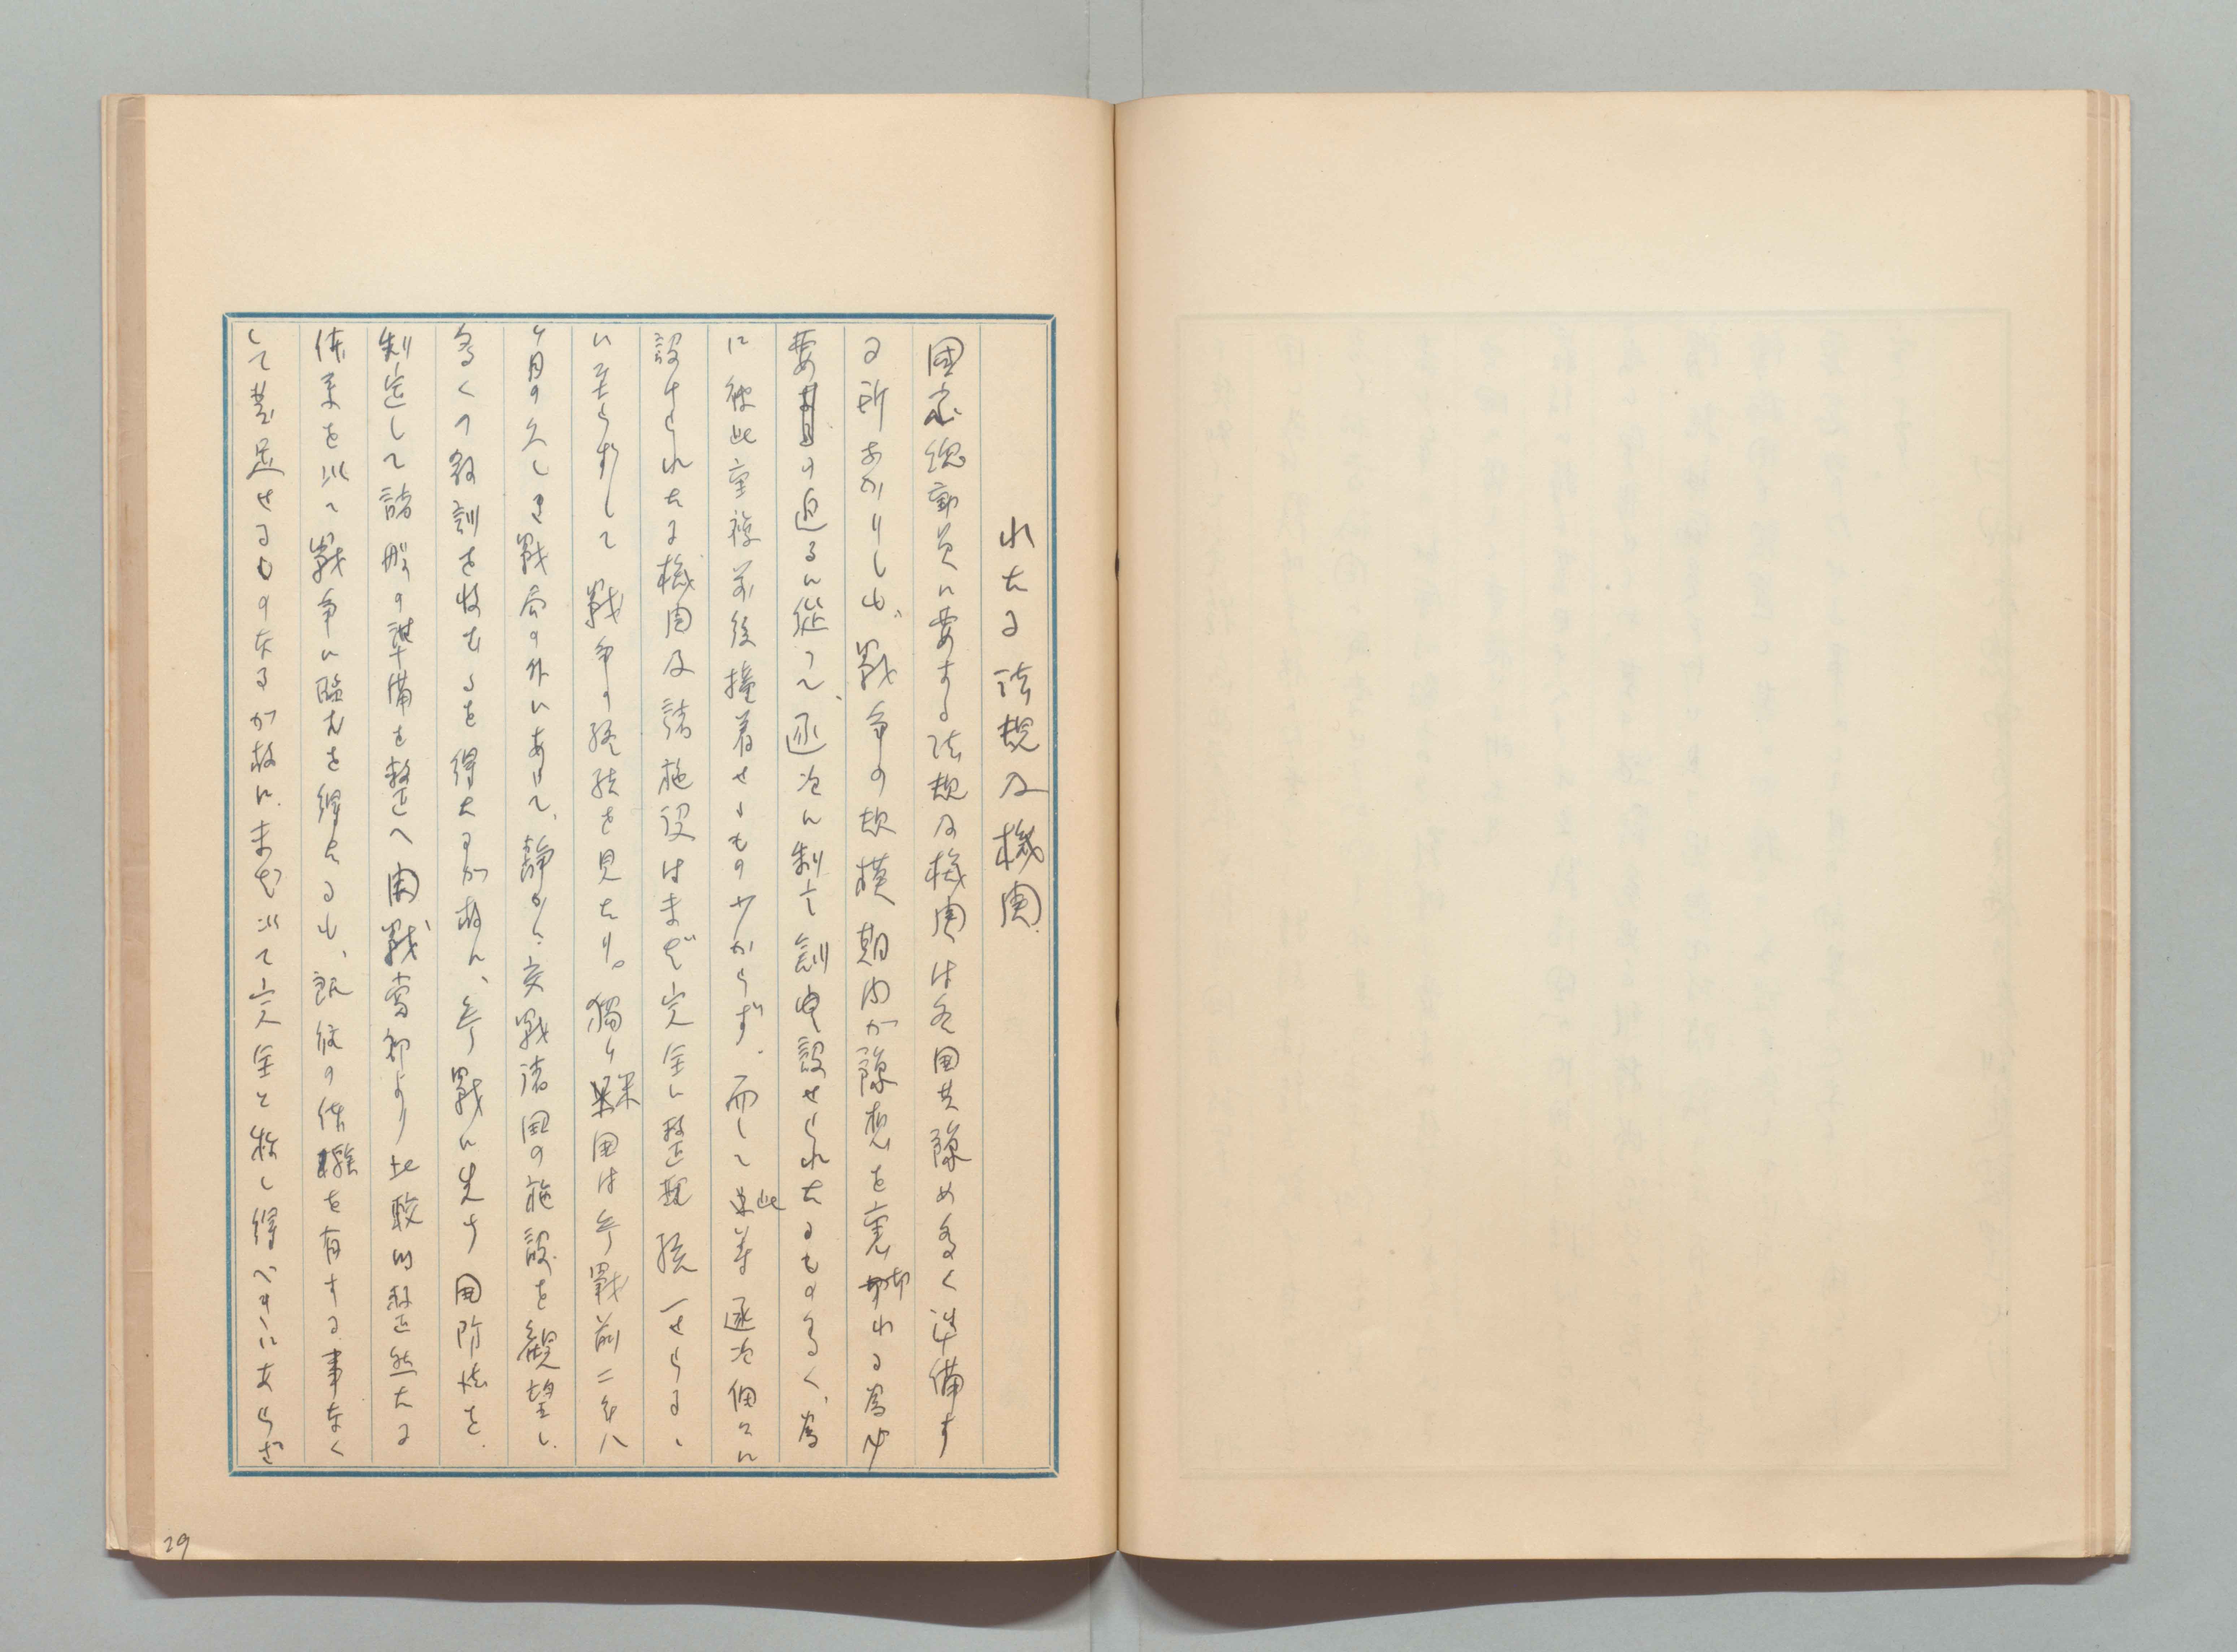 れたる法規及機関
国家総動員に要する法規及機関は各国共豫め多く準備す
る所ありしも、戦争の規模期間が豫想を裏切れる為
要の迫るに従って、逐次に制定創設せられたるもの多く、為
に彼此重複前後撞着せるもの少からず、而して此等逐次個々に
設けられたる機関及諸施設はまだ完全に整理統一せらるゝ
に至らずして戦争の終結を見たり。獨り米国は参戦前二年八
ヶ月の久しき戦局の外にありて、静かに交戦諸国の施設を観望し
多くの教訓を收むるを得たるが故に、参戦に先ち国防法を
制定して諸般の準備を整へ開戦当初より比較的整然たる
体系を以て戦争に臨むを得たるも、既往の体験を有する事なく
して蹶起せるものなるが故に、未だ以て完全と称し得べきにあらず
29